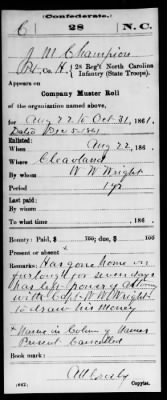 (Confederate.)
C 28 N.C.
J M Champion
Pt, Co. H, 28 Reg't North Carolina
Infantry (State Troops).
Appears on
Company Muster Roll
of the organization named above,
for Aug 22 to Oct 31, 1861.
Dated Dec 5 1861
Enlisted:
When Aug 22, 186 .
Where Cleaveland
By whom W W Wright
Period 1 yr
Last paid:
By whom
To what time , 186 .
Bounty: Paid, $ 100; due, $ 100
Present or absent x
Remarks: Has gone home on
furlough for seven days
has left power of attorney
with Capt W W Wright
to draw his money
x Names in Column of Names
Present Cancelled
Book mark:
(642) Copyist.